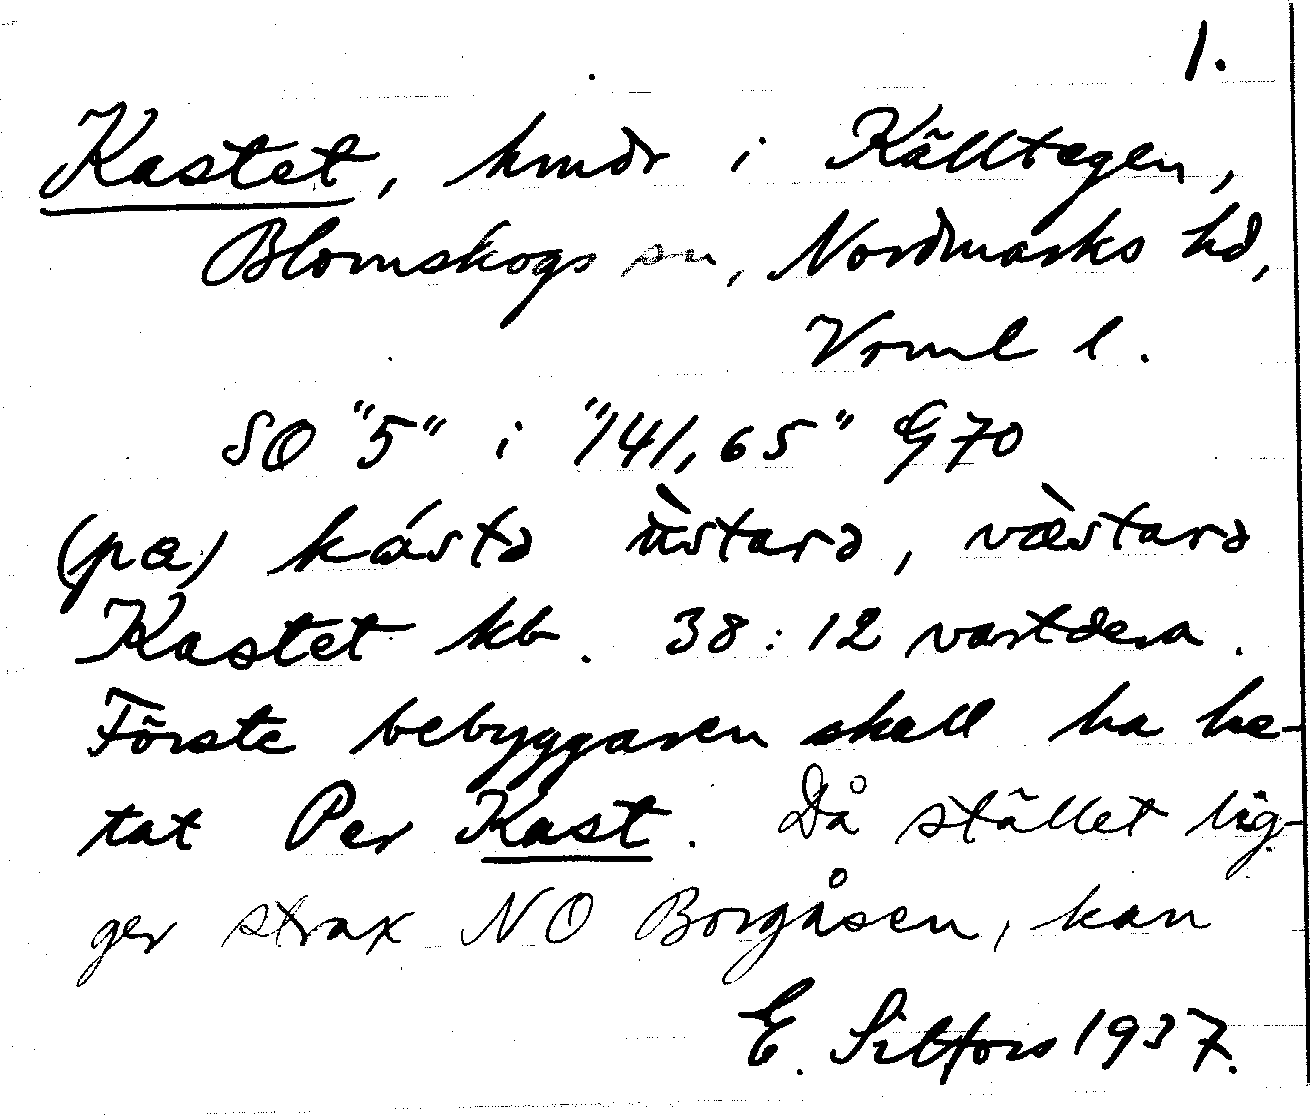 1.
Kastet, hmdr i Källtegen,
Blomskogs sn, Nordmarks hd,
Vrml l.
SO "5" i "141,65" G 70
(pa) kástə ùstarə, væ̀starə
Kastet kb. 38:12 vartdera.
Förste bebyggaren skall ha he-
tat Per Kast. Då stället lig-
ger strax NO Borgåsen, kan
E. Silfors 1937.